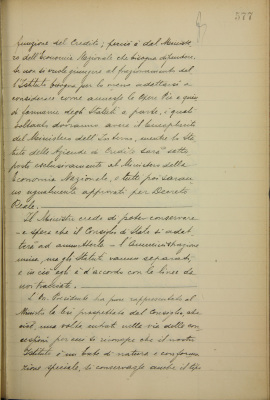 377
funzione del Credito; perciò è dal Ministe-
ro dell'Economia Nazionale che bisogna dipendere.
Se non si vuole giungere al frazionamento del-
l'Istituto bisogna pur la viene adattarsi a
considerare come annesse le Opere Pie e quin-
di farmene degli Statuti a parte, i quali
soltanto dovranno avere il beneplacito
del Ministero dell'Interno, mentre lo Sta-
tuto delle Aziende di Credito sarà sotto-
posto esclusivamente al Ministero della
Economia Nazionale, e tutti poi saran-
no ugualmente approvati per Decreto
Reale.
Il Ministro crede di poter conservare
- e spera che il Consiglio di Stato si adat-
terà ad ammetterlo - l'Amministrazione
unica, ma gli Statuti vanno separati;
e in ciò egli è d'accordo con le linee da
noi tracciate.
Il Presidente ha pure rappresentato al
Ministro la tesi pregiudiziale del Consiglio, che
cioè, una volta entrati nella via delle con-
cessioni per cui si riconosce che il nostro
Istituto è un ente di natura e conforma-
zione speciale, si conservasse anche il tipo